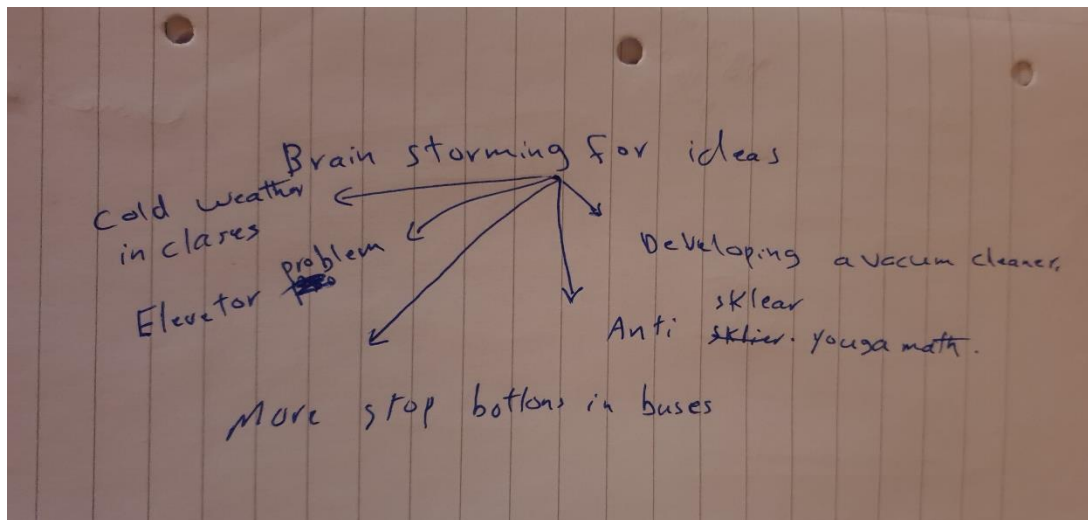 Brain storming for ideas
Cold weather
in clases
Elevetor problem
Developing a vacum cleaner.
sklear
Anti sklier. youga math.
More stop bottons in buses